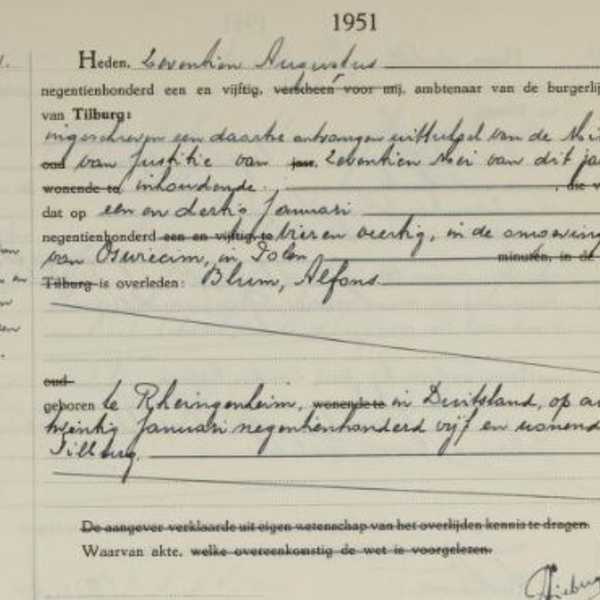 1951
Heden, zeventien Augustus
negentienhonderd een en vijftig, verscheen voor mij, ambtenaar van de burgerlij
van Tilburg:
ingeschreven een daartoe ontvangen uittreksel van de Mi
oud van Justitie van jaar, zeventien Mei van dit jaa
wonende te inhoudende: , die v
dat op een en dertig Januari
negentienhonderd een en vijftig, te vier en veertig, in de omgeving
van Oswiecim, in Polen minuten, in de
Tilburg is overleden: Blum, Alfons
oud
geboren te Rheingenheim, wonende te in Duitsland, op a
twintig Januari negentienhonderd vijf en wonend
Tilburg.
De aangever verklaarde uit eigen wetenschap van het overlijden kennis te dragen.
Waarvan akte, welke overeenkomstig de wet is voorgelezen.